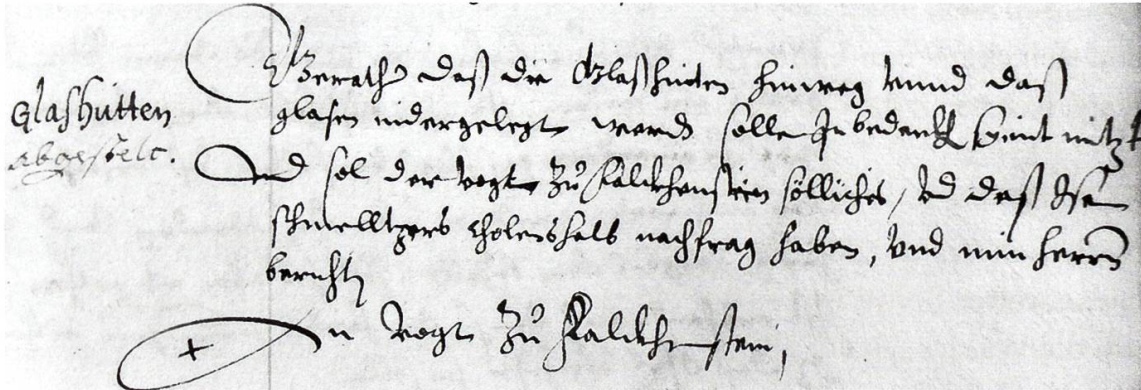 Glashutten
abgestelt.
Gerathen daß die Glaßhütten hinweg unnd daß
glasen nidergelegt werden solle In bedenck kheint nütz
Und sol der vogt zů Falckhenstein sölliches, und daß Isen
schmelltzers cholens halb nachfrag haben, und min herrn
berichten
An Vogt zů Falckhenstein,